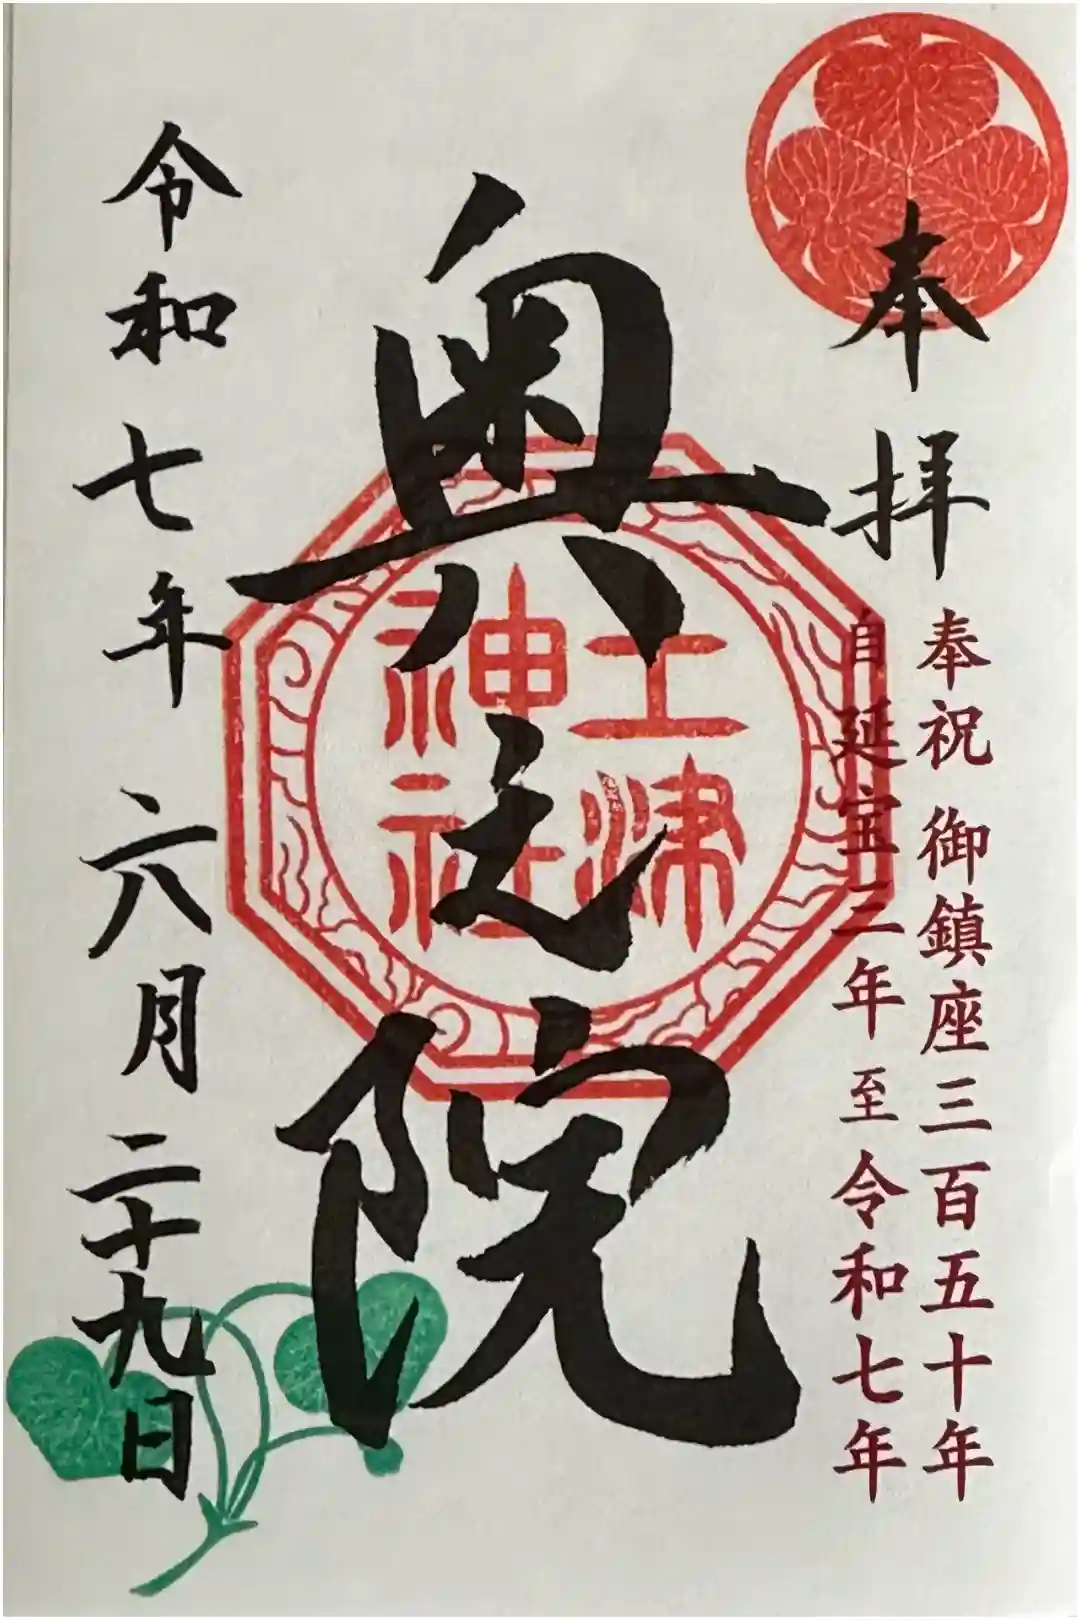 奉拝
奉祝 御鎮座三百五十年
自 延宝三年 至 令和七年
奥之院
土津
神社
令和七年 六月 二十九日